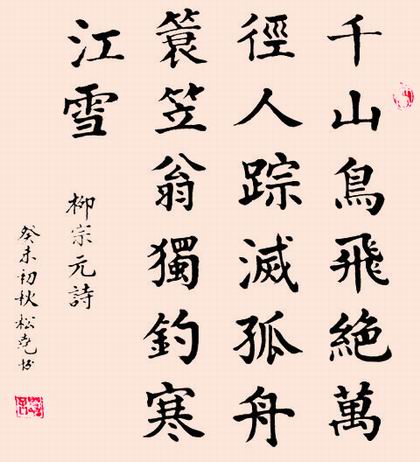 千山鳥飛絶萬
徑人踪滅孤舟
簑笠翁獨釣寒
江雪
柳宗元詩
癸未初秋松